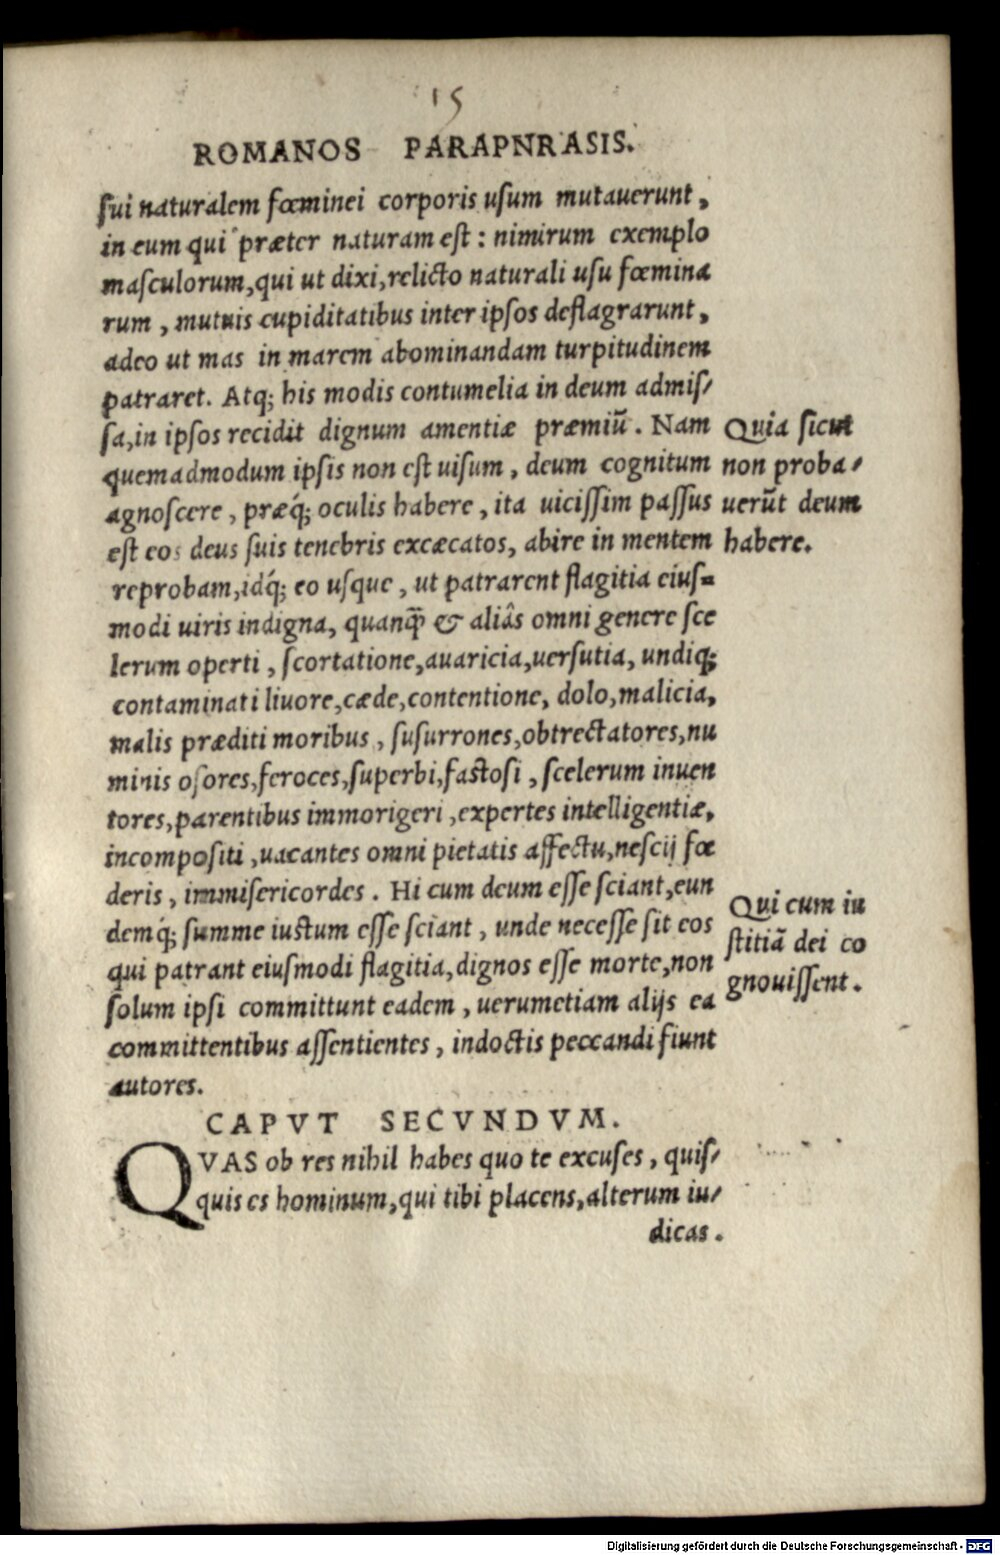 15
ROMANOS PARAPNRASIS.
sui naturalem fœminei corporis usum mutauerunt,
in eum qui præter naturam est: nimirum exemplo
masculorum, qui ut dixi, relicto naturali usu fœmina
rum, mutuis cupiditatibus inter ipsos deflagrarunt,
adeo ut mas in marem abominandam turpitudinem
patraret. Atq; his modis contumelia in deum admis/
sa, in ipsos recidit dignum amentiæ præmiū. Nam
quemadmodum ipsis non est uisum, deum cognitum
agnoscere, præq́; oculis habere, ita uicissim passus
est eos deus suis tenebris excæcatos, abire in mentem
reprobam, idq́; eo usque, ut patrarent flagitia eius=
modi uiris indigna, quanq̃ & aliâs omni genere sce
lerum operti, scortatione, auaricia, uersutia, undiq;
contaminati liuore, cæde, contentione, dolo, malicia,
malis præditi moribus, susurrones, obtrectatores, nu
minis osores, feroces, superbi, fastosi, scelerum inuen
tores, parentibus immorigeri, expertes intelligentiæ,
incompositi, uacantes omni pietatis affectu, nescij fœ
deris, immisericordes. Hi cum deum esse sciant, eun
demq́; summe iustum esse sciant, unde necesse sit eos
qui patrant eiusmodi flagitia, dignos esse morte, non
solum ipsi committunt eadem, uerumetiam alijs ea
committentibus assentientes, indoctis peccandi fiunt
autores.
Quia sicut
non proba/
uerūt deum
habere.
Qui cum iu
stitiā dei co
gnouissent.
CAPVT SECVNDVM.
QVAS ob res nihil habes quo te excuses, quis/
quis es hominum, qui tibi placens, alterum iu/
dicas.
Digitalisierung gefördert durch die Deutsche Forschungsgemeinschaft - DFG